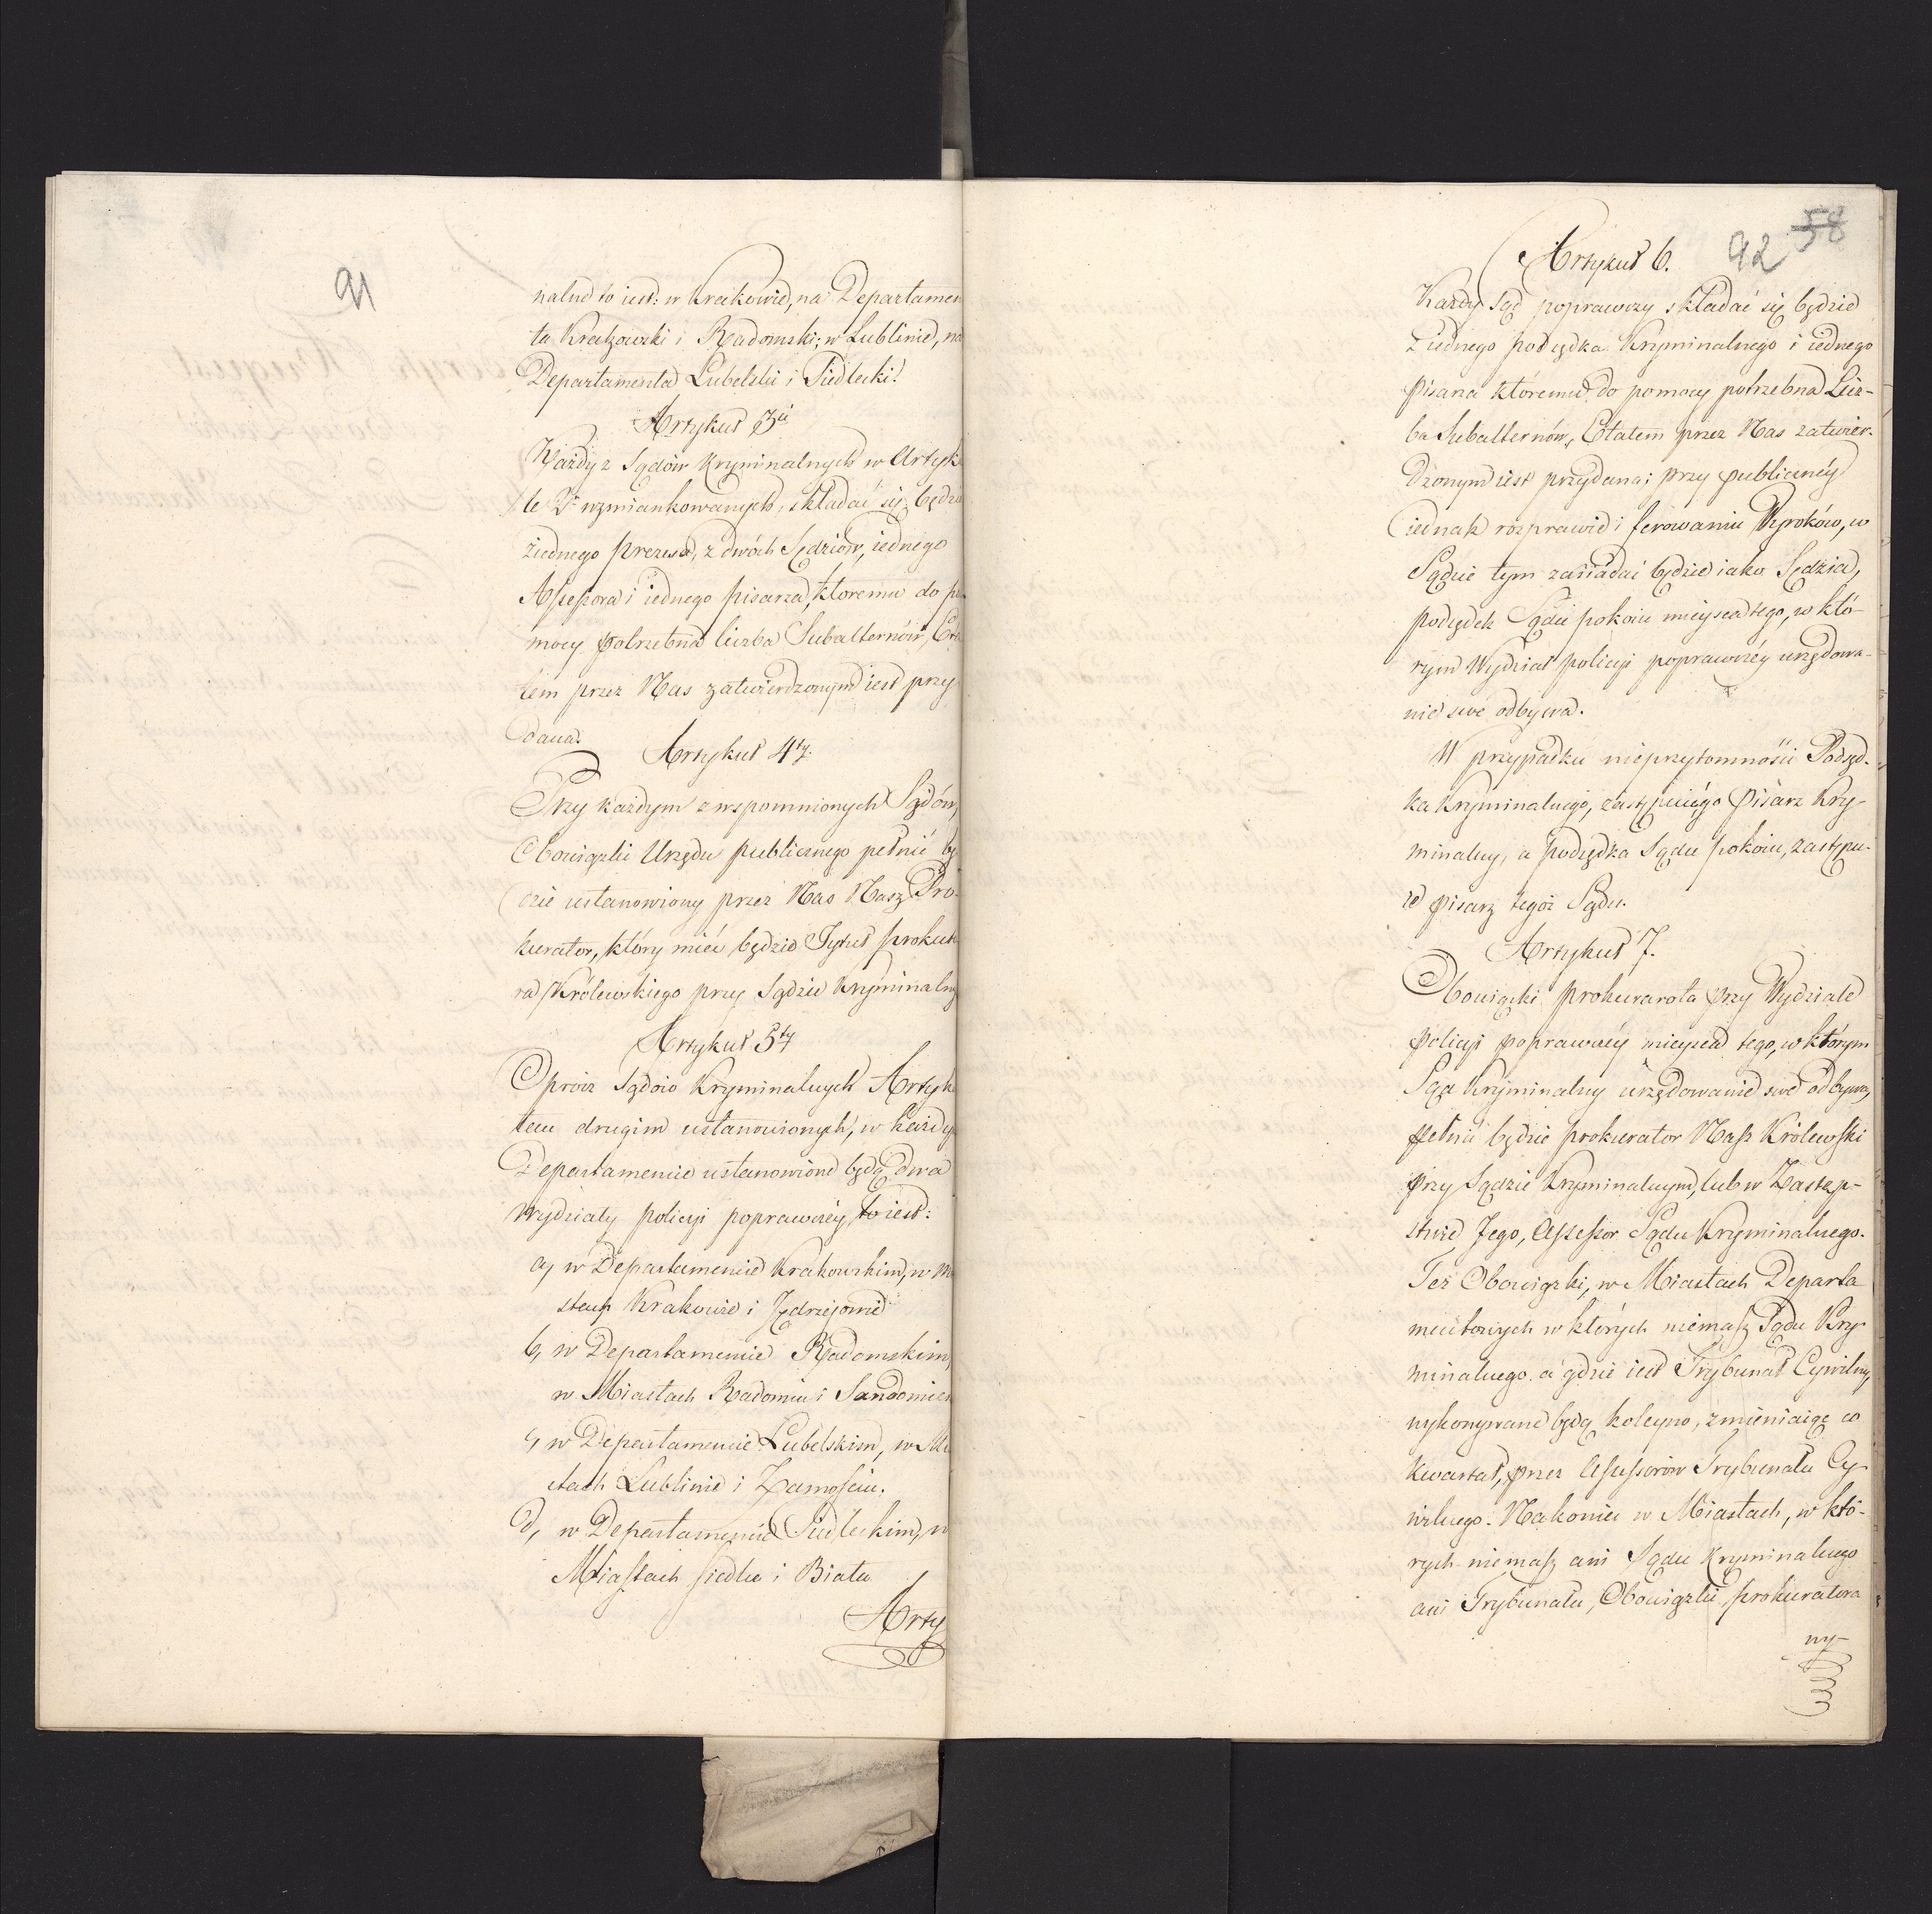 91
nalne to iest: w Krakowie, na Departamen
ta Krakowski i Radomski; w Lublinie, na
Departamenta Lubelski i Siedlecki.
Artykuł 3ci
Każdy z Sądów Kryminalnych w Artyk
le 2m wzmiankowanych, składać się będzie
z iednego Prezesa, z dwóch Sędziów, iednego
Assessora i iednego pisarza, ktoremu do po
mocy potrzebna liczba Subalternów, Eta
tem przez Nas zatwierdzonym iest przy
dana.
Artykuł 4ty.
Przy każdym z wspomnionych Sądów,
Obowiązki Urzędu publicznego pełnić bę
dzie ustanowiony przez Nas Nasz Pro-
kurator, który mieć będzie Tytuł prokura
ra Królewskiego przy Sądzie Kryminalny
Artykuł 5ty
Oprócz Sądów Kryminalnych Artyk
łem drugim ustanowionych, w każdy
Departamencie ustanowione będą dwa
wydziały policyi poprawczéy to iest:
a, w Departamencie Krakowskim, w Mia
stach Krakowie i Jędrzejowie
b, w Departamencie Radomskim,
w Miastach Radomiu i Sandomier
c, w Departamencie Lubelskim, w Mia
stach Lublinie i Zamościu.
d, w Departamencie Siedleckim, w
Miastach Siedlce i Biała
Arty
58
92
Artykuł 6.
Każdy Sąd poprawczy składać się będzie
z iednego podsędka Kryminalnego i iednego
pisarza któremu do pomocy potrzebna Licz-
ba Subalternów, Etatem przez Nas zatwier-
dzonym iest przydana; przy publicznéy
iednak rozprawie i ferowaniu Wyroków, w
Sądzie tym zasiadać będzie iako Sędzia,
podsędek Sądu pokoiu mieysca tego, w któ-
rym Wydział policyi poprawczéy urzędowa-
nie swe odbywa.
W przypadku nieprzytomności Podsęd-
ka Kryminalnego, zastępuie go Pisarz Kry-
minalny, a podsędka Sądu pokoiu, zastępu-
ie pisarz tegoż Sądu.
Artykuł 7.
Obowiązki prokurarota przy Wydziale
policyi poprawczéy mieysca tego, w którym
Sąd Kryminalny urzędowanie swe odbywa,
pełnić będzie prokurator Nasz Królewski
przy Sądzie Kryminalnym, lub w Zastęp-
stwie Jego, Assessor Sądu Kryminalnego.
Też Obowiązki, w Miastach Departa
mentowych w których niemasz Sądu Kry
minalnego. a gdzie iest Trybunał Cywilny
wykonywane będą koleyno, zmieniaiąc co
kwartał, przez Assessorów Trybunału Cy-
wilnego. Nakoniec w Miastach, w któ-
rych niemasz ani Sądu Kryminalnego
ani Trybunału, Obowiązki prokuratora
wy-